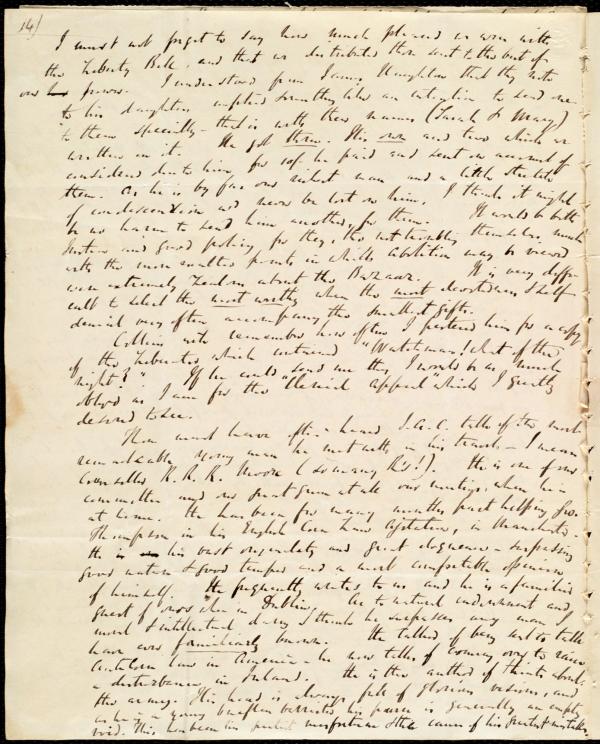 14)
I must not forget to say how much pleased we were with
the Liberty Bell, and that we distributed those sent to the best of
our powers. I understood from James Haughton that they
to his daughters implied something like an intention to send one
to them specially - that is with their names (Sarah & Mary)
written in it. He got three. His own and two which we
considered due to him, for wd he paid and sent on account of
them. As he is by far our richest man and a little
of condescension wd never be lost on him, I think it might
be no harm to send him another, for them. It would be both
justice and good policy, for they, tho not troubling themselves much
with the more exalted points in which abolition may be viewed
were extremely zealous about the Bazaar. It is very diffi-
cult to select the most worthy when the most devotedness & self-
denial very often accompany the smallest gifts.
Collins will remember how often I pestered him for a copy
of the Liberator which contained "Watchman! What of the
night?". If he could send me this, I would be as much
obliged as I am for the "Clerical Appeal" which I greatly
desired to see.
Thou must have often heard J.A.C. talk of the most
remarkable young man he met with in his travels - I mean
Counsellor R. R. R. Moore (so many R's!). He is one of our
committee and our great gun at all our meetings, when he is
at home. He has been for many months past helping Geo.
Thompson in his English Corn Law Agitation, in Manchester.
He is his vast originality and great eloquence - surpassing
good nature & good temper and a most comfortable opinion
of himself. He frequently writes to us and he is a familiar
guest of ours when in Dublin. As to natural endowment and
moral & intellectual daring I think he surpasses any man I
have ever familiarly known. He talked of being sent to talk
Anticorn Law in America - he now talks of coming over to raise
a disturbance in Ireland. He is the author of thints about
the army. His head is always full of glorious visions, and
as being a young briefless barrister his purse is generally an empty
void. This has been his great misfortune & the cause of his greatest mistakes